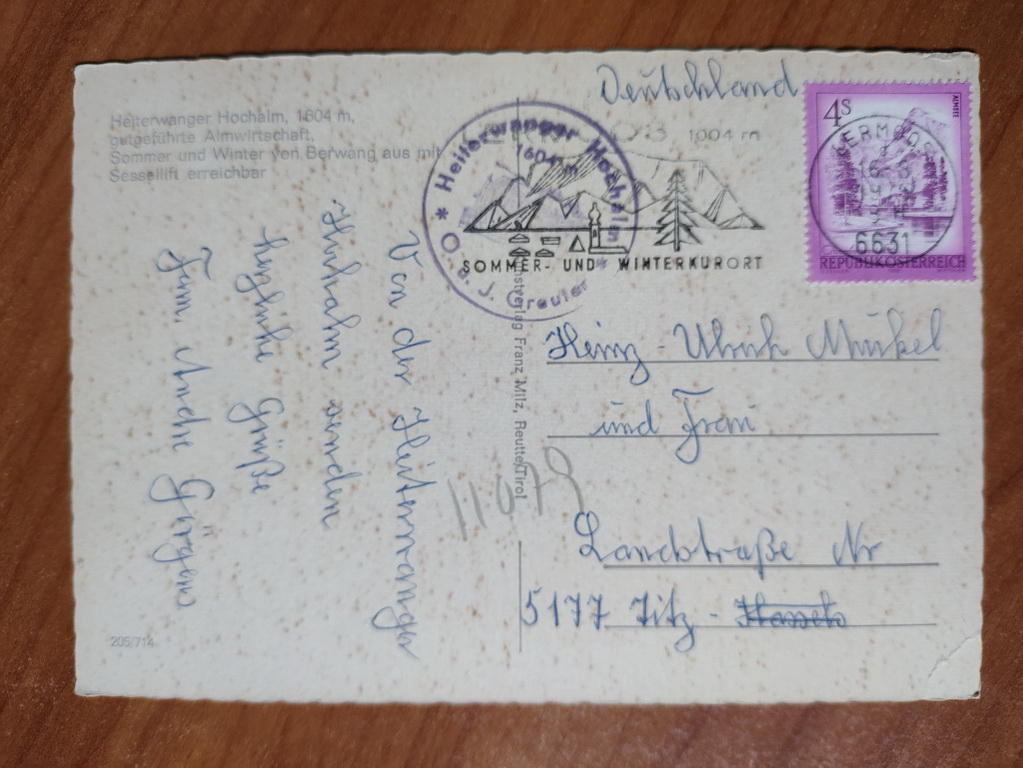 Heiterwanger Hochalm, 1604 m,
gutgeführte Almwirtschaft,
Sommer und Winter von Berwang aus mit
Sessellift erreichbar
Von der Heiterwanger
senden
herzliche Grüße
Fam.
205/714
Kunstverlag Franz Milz, Reutte/Tirol
* Heiterwanger Hochalm *
1604 m
J. Greuter
1004 m
SOMMER- UND WINTERKURORT
Deutschland
4S
ALMSEE
6631
REPUBLIK ÖSTERREICH
Heinz-Ulrich
und Frau
Landstraße Nr
5177 Titz -